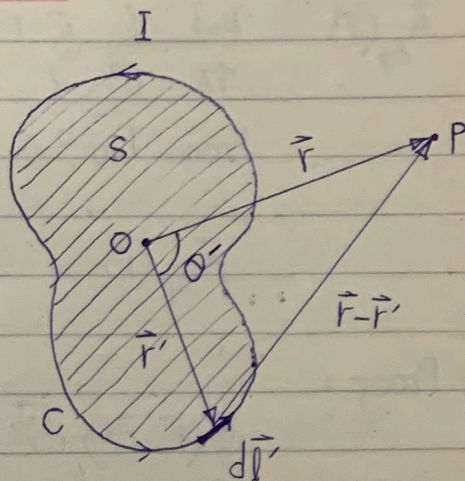 I
S
r⃗
P
O
θ'
r⃗-r⃗'
r⃗'
C
dl⃗'